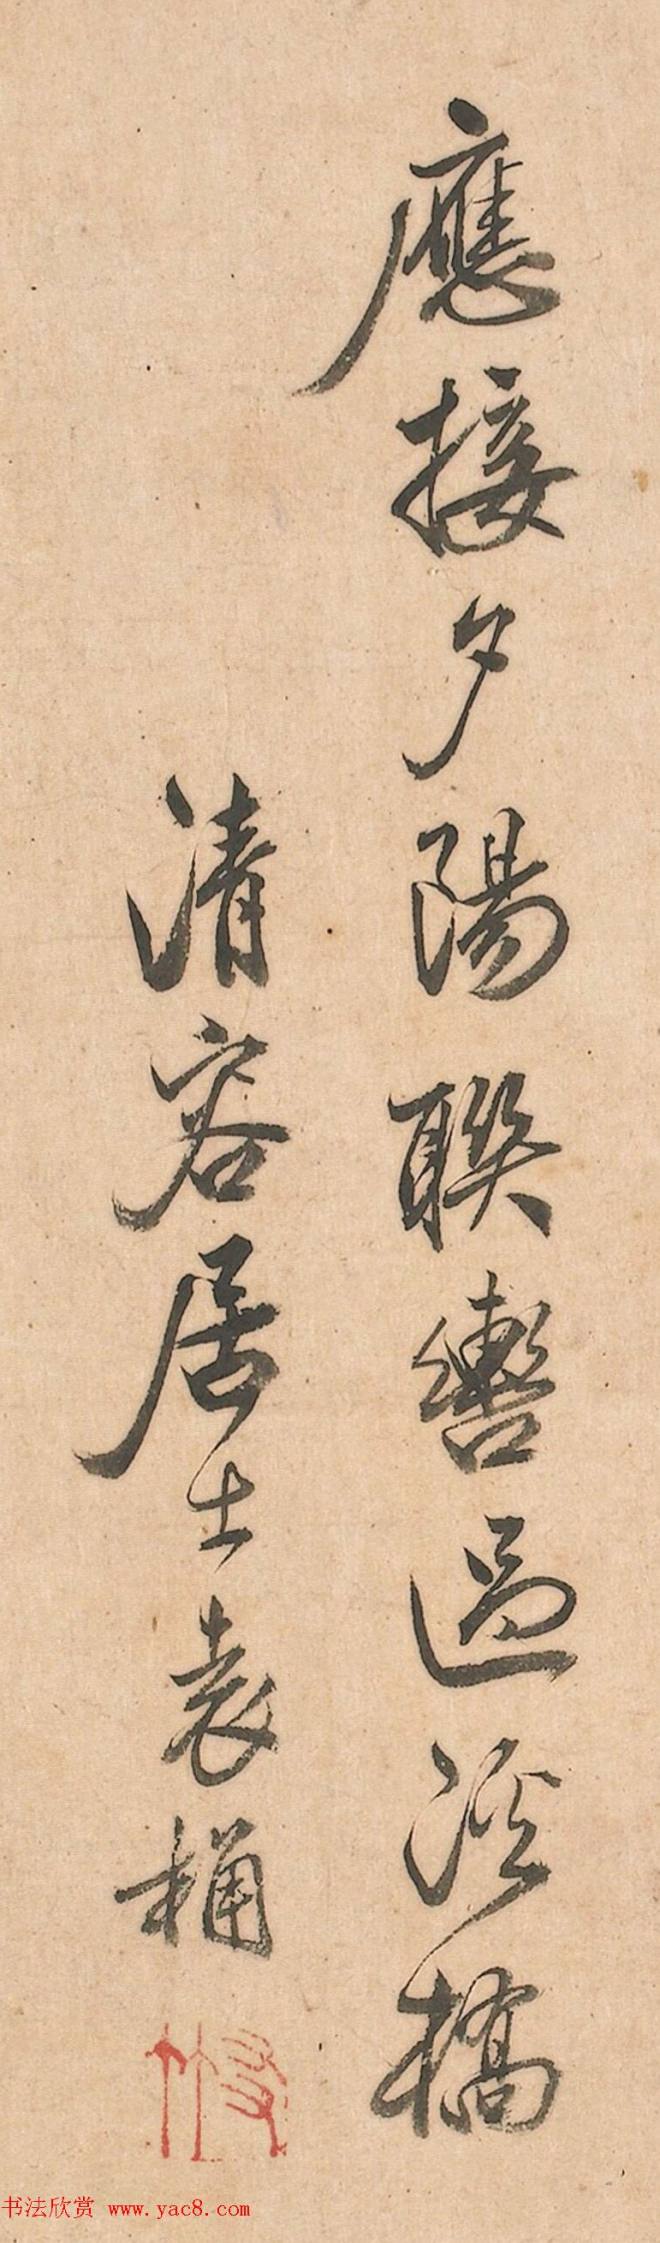 應接夕陽聯轡過溪橋
清容居士袁桷
书法欣赏 www.yac8.com